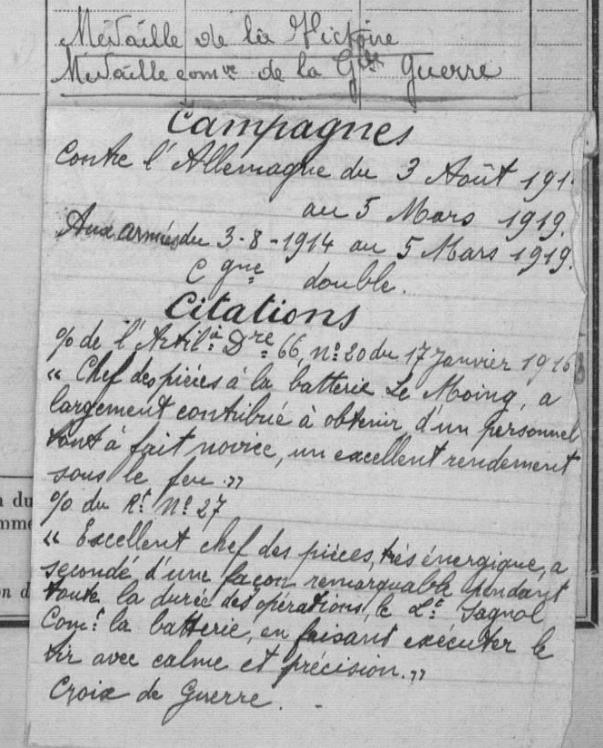 Médaille de la Victoire
Médaille com.ve de la Gde Guerre
Campagnes
Contre l'Allemagne du 3 Août 191
au 5 Mars 1919.
Aux armées du 3-8-1914 au 5 Mars 1919.
Cgne double.
Citations
% de l'Artil.ie Dre 66, No 20 du 17 Janvier 1916
" Chef des pièces à la batterie Le Moing, a
largement contribué à obtenir, d'un personnel
tout à fait novice, un excellent rendement
sous le feu. "
% du Rt No 27
" Excellent chef des pièces, très énergique, a
secondé d'une façon remarquable pendant
toute la durée des opérations, le Lt Sagnol
Comt la batterie, en faisant exécuter le
tir avec calme et précision. "
Croix de Guerre. -
n du
mme
on d